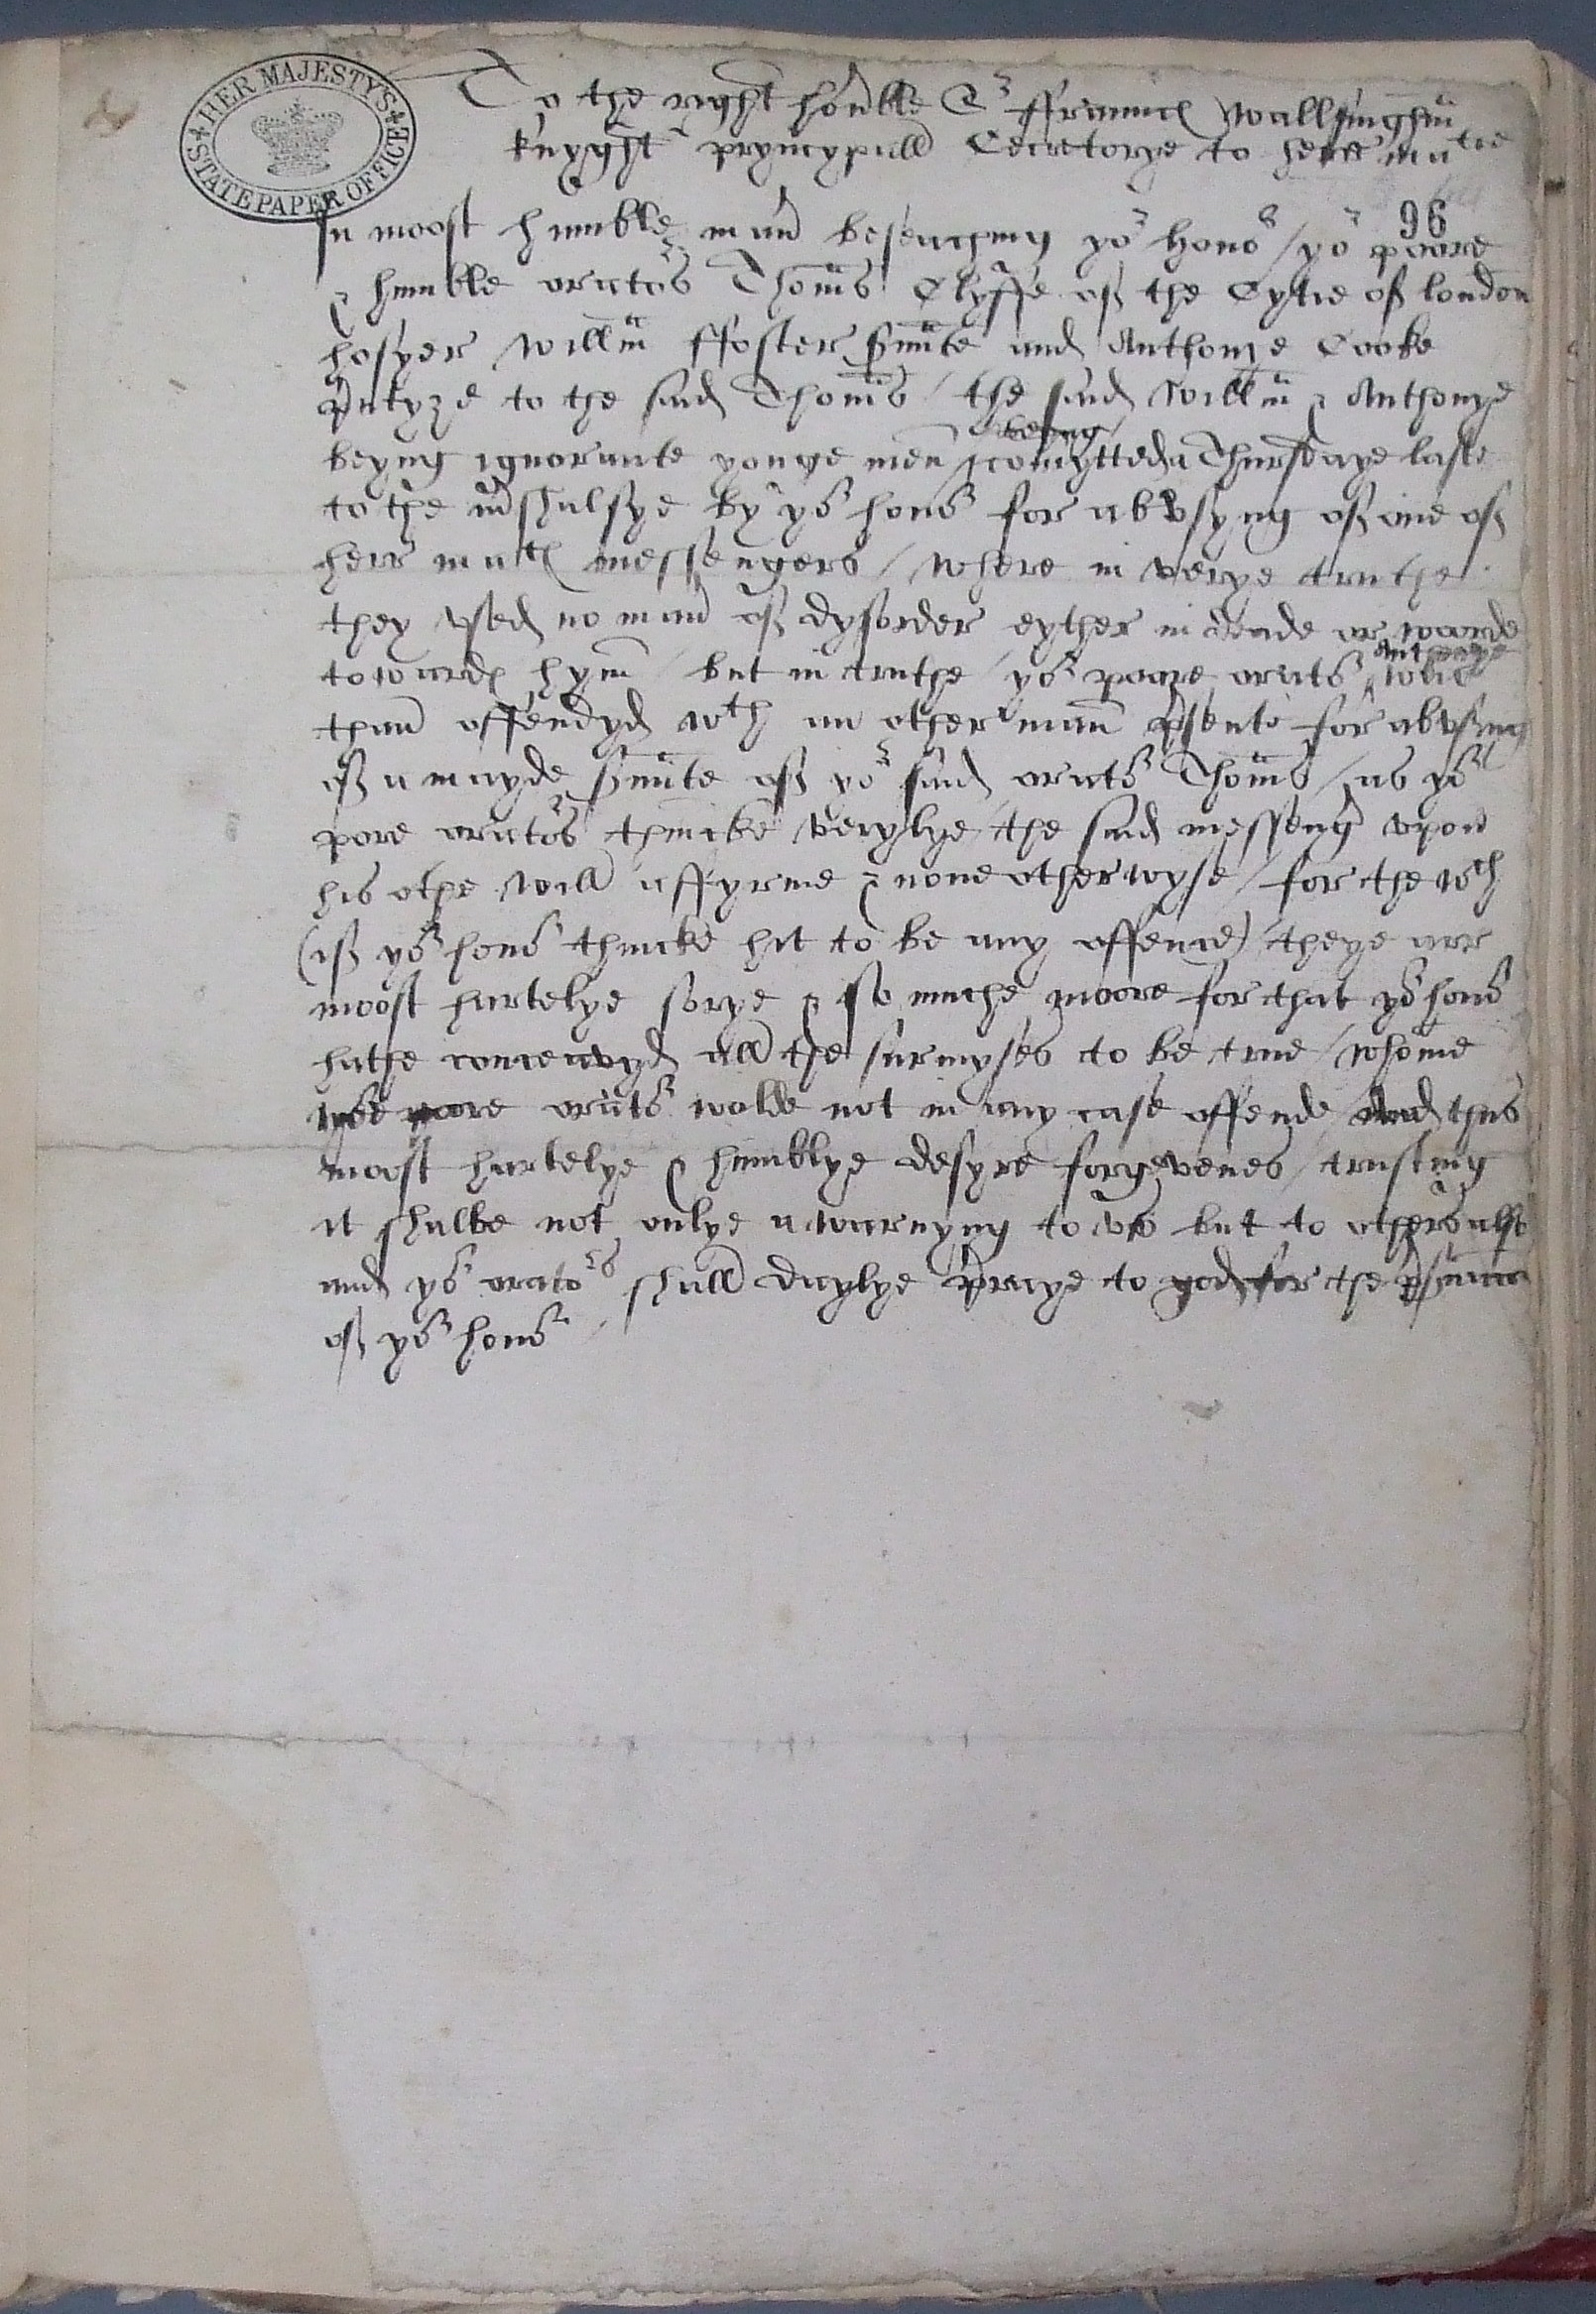 HER MAJESTY'S STATE PAPER OFFICE
To the ryght honble Sr ffrauncs Wallsinghm
knyght pryncypall Secretorye to here matie
96
In moost humble mann beseaching yor honor / yor poore
& humble orators Thoms Clyffe of the Cytie of london
hosyer Willm ffoster srunte and Anthonye Cooke
prntyze to the said Thoms / the said Willm & Anthonye
beyng
beyng ignorante yonge men comytted a Thursdaye laste
to the mrshalsye by yor honor for abvsyng of one of
here mats messengers / where in verye truthe
they vsed no mann of dysorder eyther in deade or worde
Anthonye
towards hym / but in truthe / yor poore orator was
than offendyd wth an other man prsente for abvsing
of a mayde srunte of yor said orator Thoms / as yor
pore orators thincke verylye the said messengr vpon
his othe will affyrme & none otherwyse / for the wch
(if yor honor thincke hit to be any offence) theye are
moost hartelye sorye & so muche moore for that yor honor
hathe conceavyd all the surmyses to be true / whome
yor poore orators wolde not in any case offende And thus
moost hartelye & humblye desyre forgevenes / trusting
it shalbe not onlye a warnyng to vs but to others also
and yor orators shall daylye praye to god for the prsruacon
of yor honor /